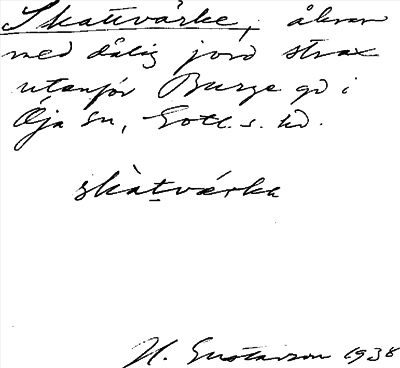 Skattvärke, åkrar
med dålig jord strax
utanför Burge gd i
Öja sn, Gotl. s. hd.
skàtvärka
H. Gustavson 1938